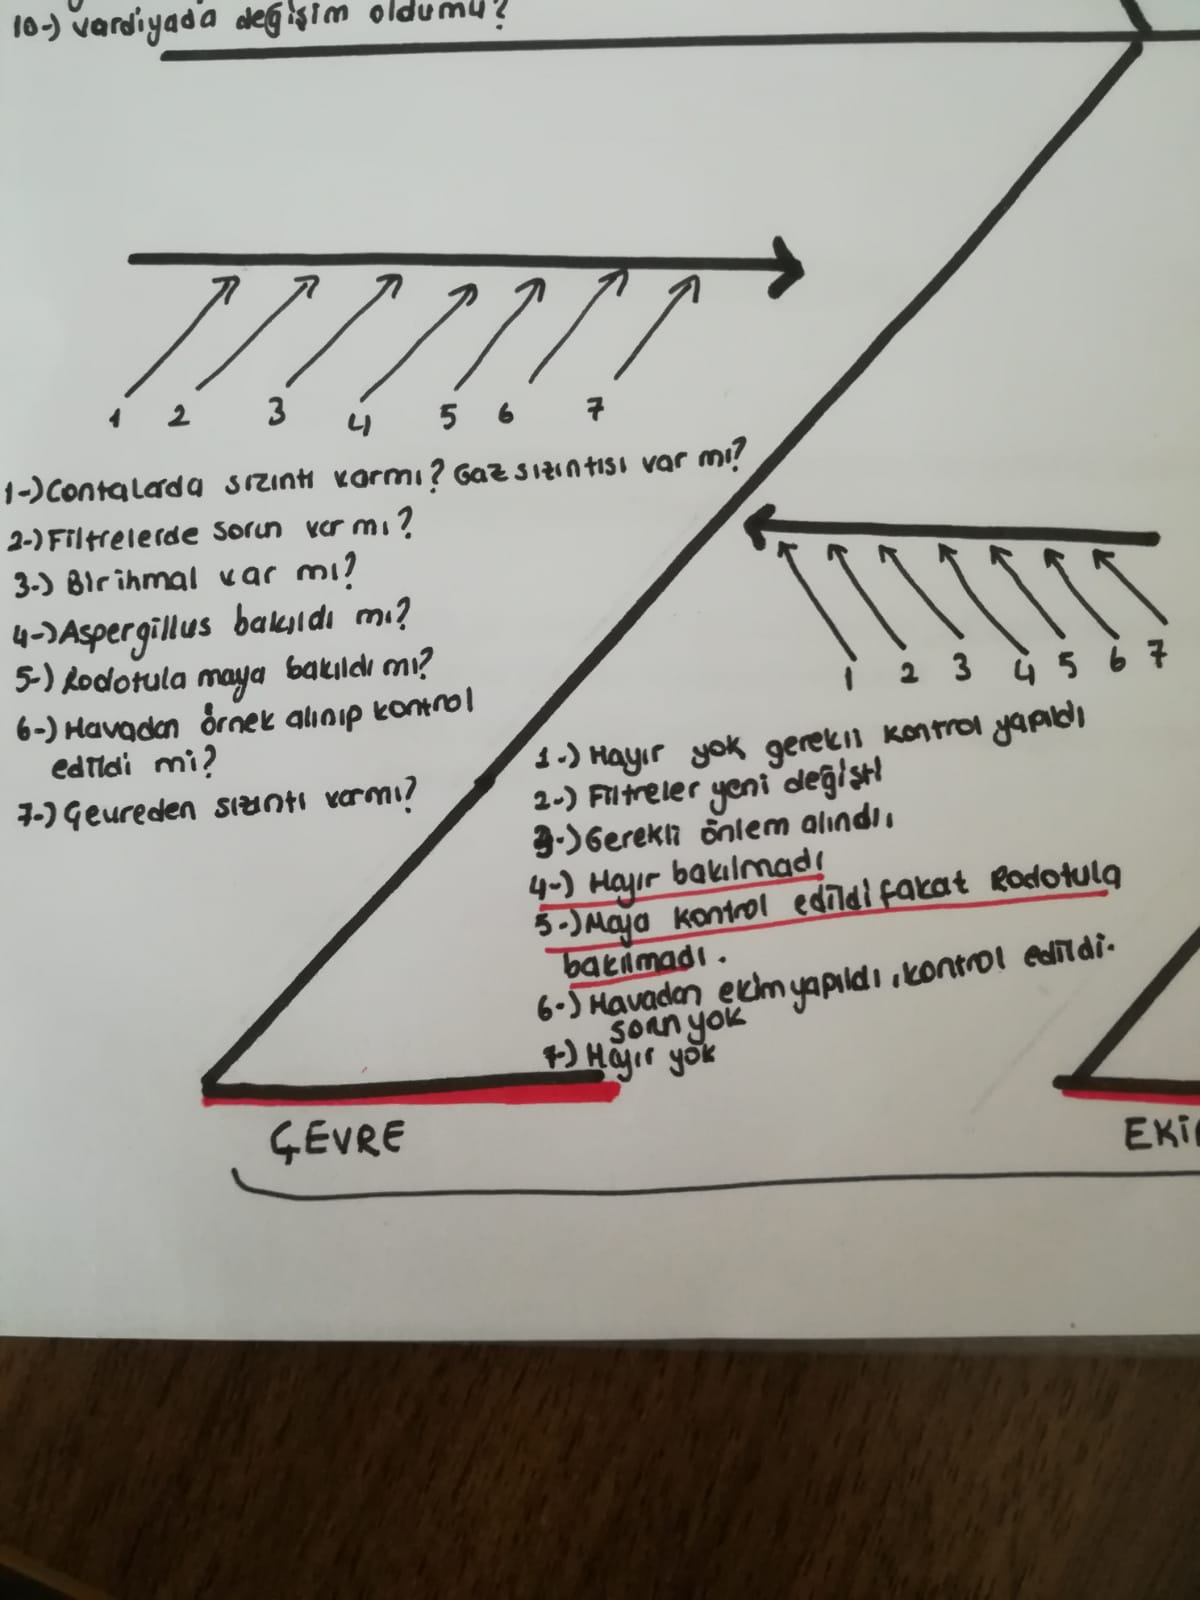 10-) vardiyada değişim oldumu?
1 2 3 4 5 6 7
1-) Contalarda sızıntı varmı? Gaz sızıntısı var mı?
2-) Filtrelerde sorun var mı?
3-) Bir ihmal var mı?
4-) Aspergillus bakıldı mı?
5-) Rodotula maya bakıldı mı?
6-) Havadan örnek alınıp kontrol
edildi mi?
7-) Çevreden sızıntı varmı?
1 2 3 4 5 6 7
1-) Hayır yok gerekli kontrol yapıldı
2-) Filtreler yeni değişti
3-) Gerekli önlem alındı.
4-) Hayır bakılmadı
5-) Maya kontrol edildi fakat Rodotula
bakılmadı.
6-) Havadan ekim yapıldı, kontrol edildi.
sorun yok
7-) Hayır yok
ÇEVRE
EKİ